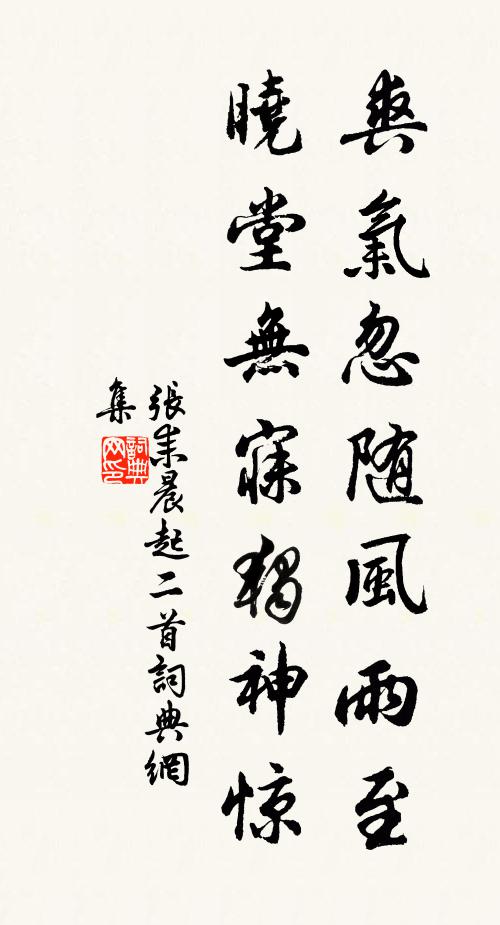 爽氣忽随風雨至
曉堂無寐獨神惊
張耒晨起二首詞典網
集
詞典
网印